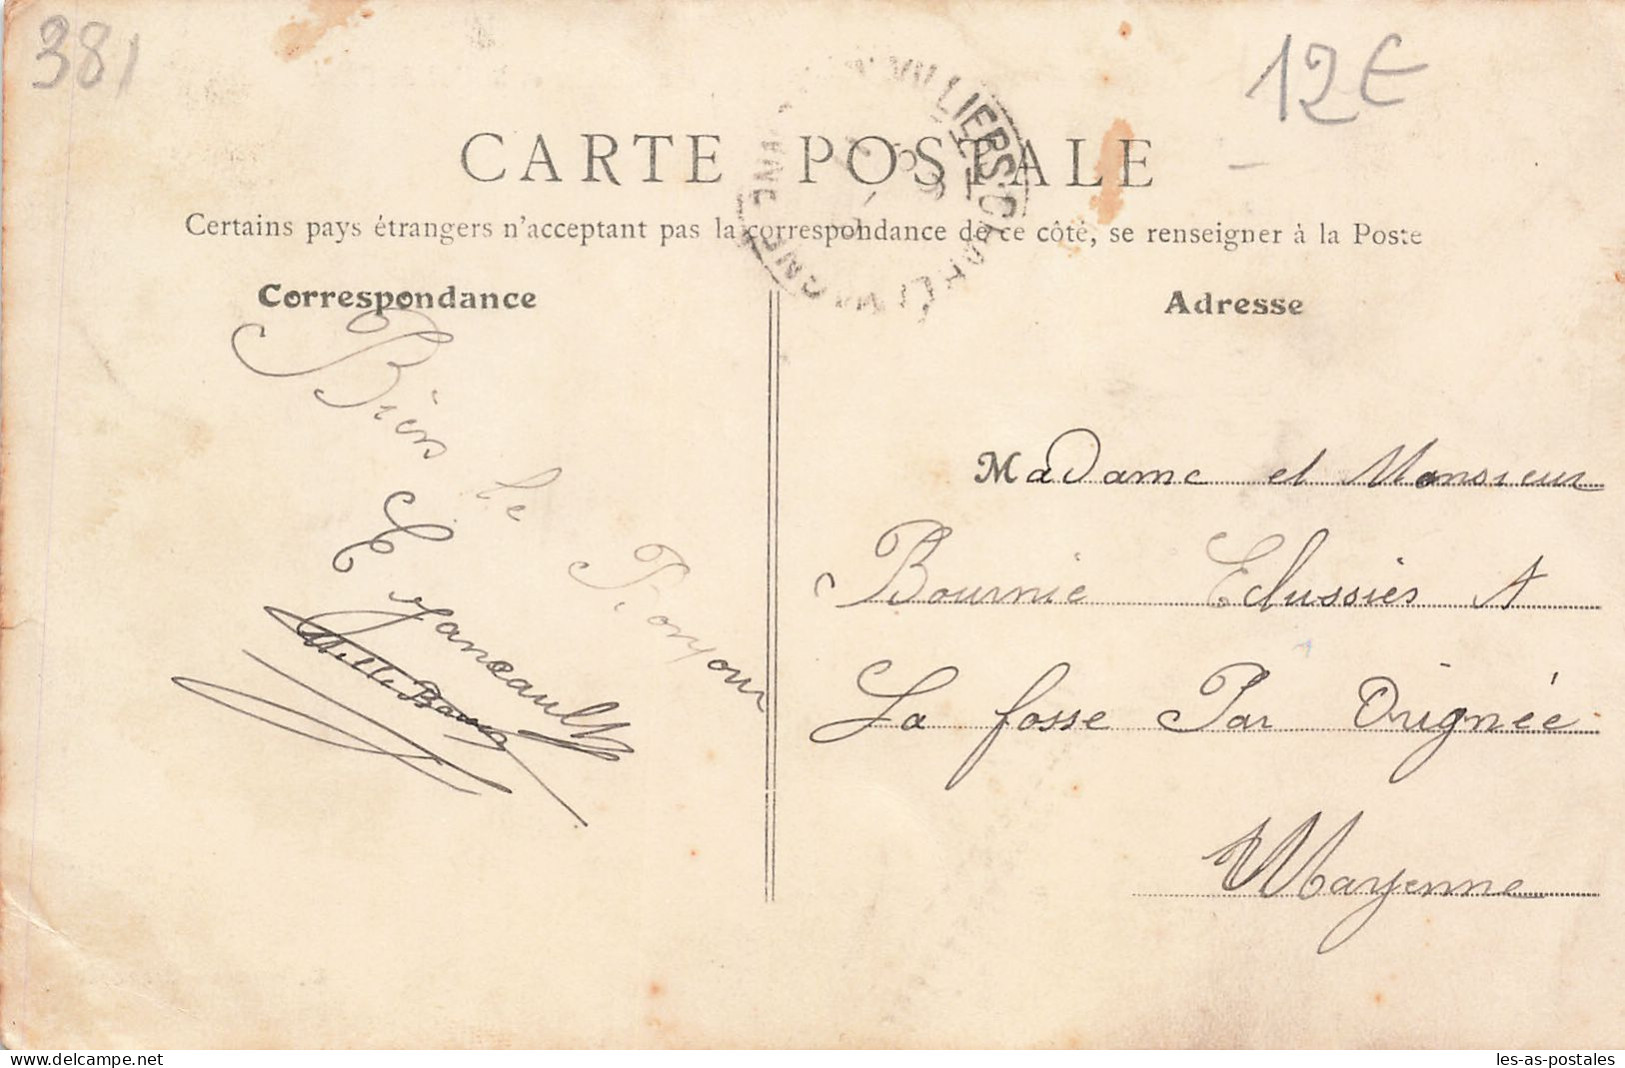 381
12€
VILLIERS-CHARLEMAGNE
CARTE POSTALE
Certains pays étrangers n'acceptant pas la correspondance de ce côté, se renseigner à la Poste
Correspondance
Adresse
Bien le
Bonjour
E Janeault
Madame et Monsieur
Bournie Eclussies A
La fosse Par Orignée
Mayenne
delcampe.net
les-as-postales